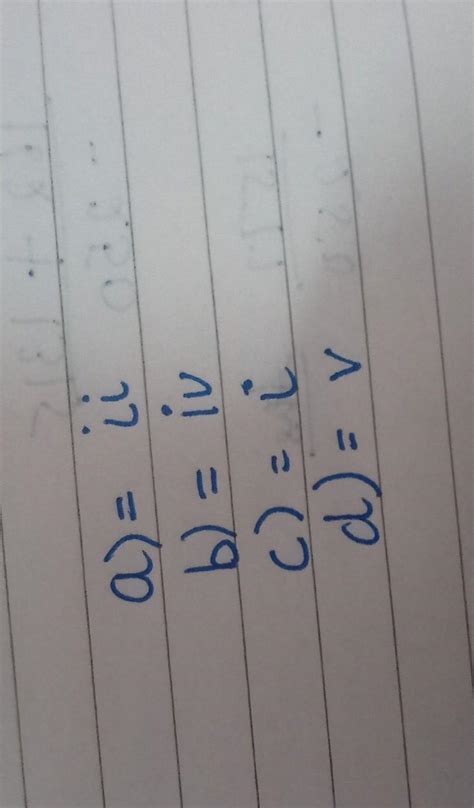 a) = ii
b) = iv
c) = i
d) = v